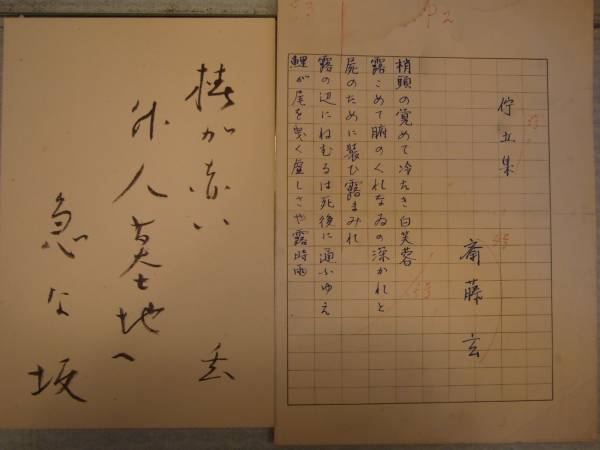 椿が赤い
外人墓地へ
急な坂
玄
P2
佇立集
斎藤玄
梢頭の覚めて冷たき白芙蓉
露こめて腑のくれなゐの深かれと
屍のために装ひ露まみれ
露の辺にねむるは死後に通ふゆえ
鯉が尾を曳く虚しさや露時雨